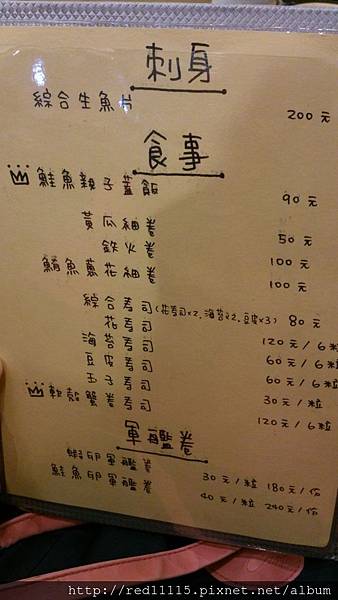 刺身
綜合生魚片 200元
食事
鮭魚親子蓋飯 90元
黃瓜細卷 50元
鉄火卷 100元
鮪魚蔥花細卷 100元
綜合寿司(花寿司×2,海苔×2,豆皮×3) 80元
花寿司 120元/6粒
海苔寿司 60元/6粒
豆皮寿司 60元/6粒
玉子寿司 30元/粒
軟殼蟹卷寿司 120元/6粒
軍艦卷
蝦卵軍艦卷 30元/粒 180元/份
鮭魚卵軍艦卷 40元/粒 240元/份
http://red11115.pixnet.net/album